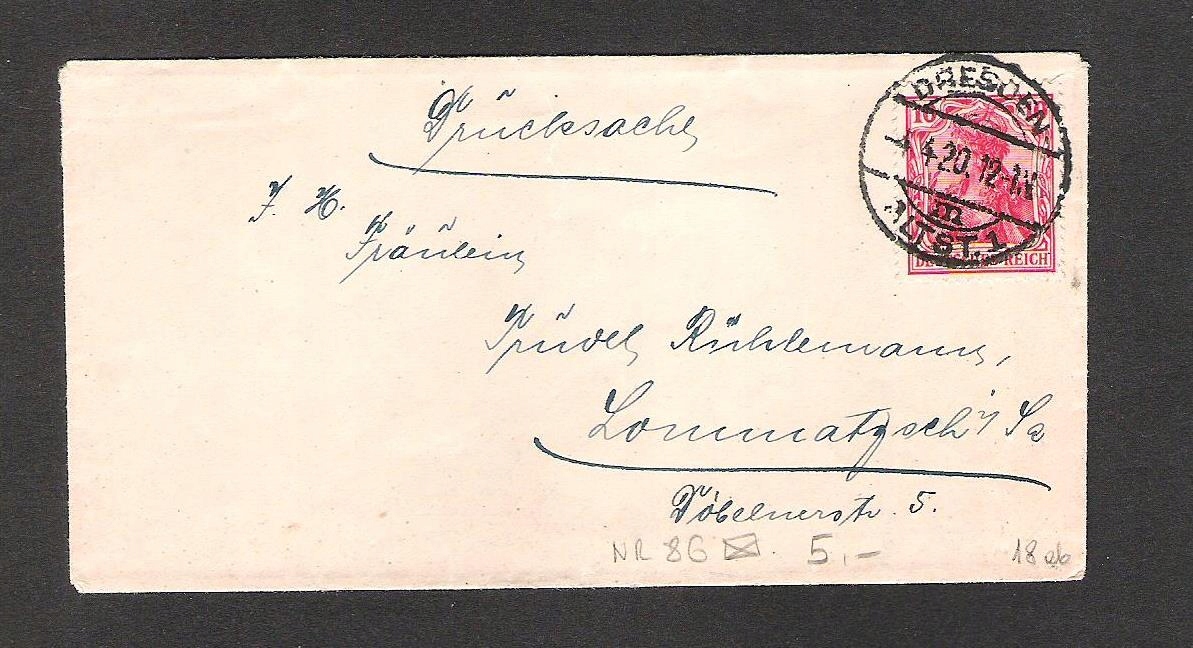 Drucksache
DRESDEN
10
4.4.20.12-1N
m
ALTST. 1
DEUTSCHES REICH
Fräulein
Trudel Rühlemann,
Lommatzsch i/Sa
Döbelnerstr. 5.
NR 86 5,-